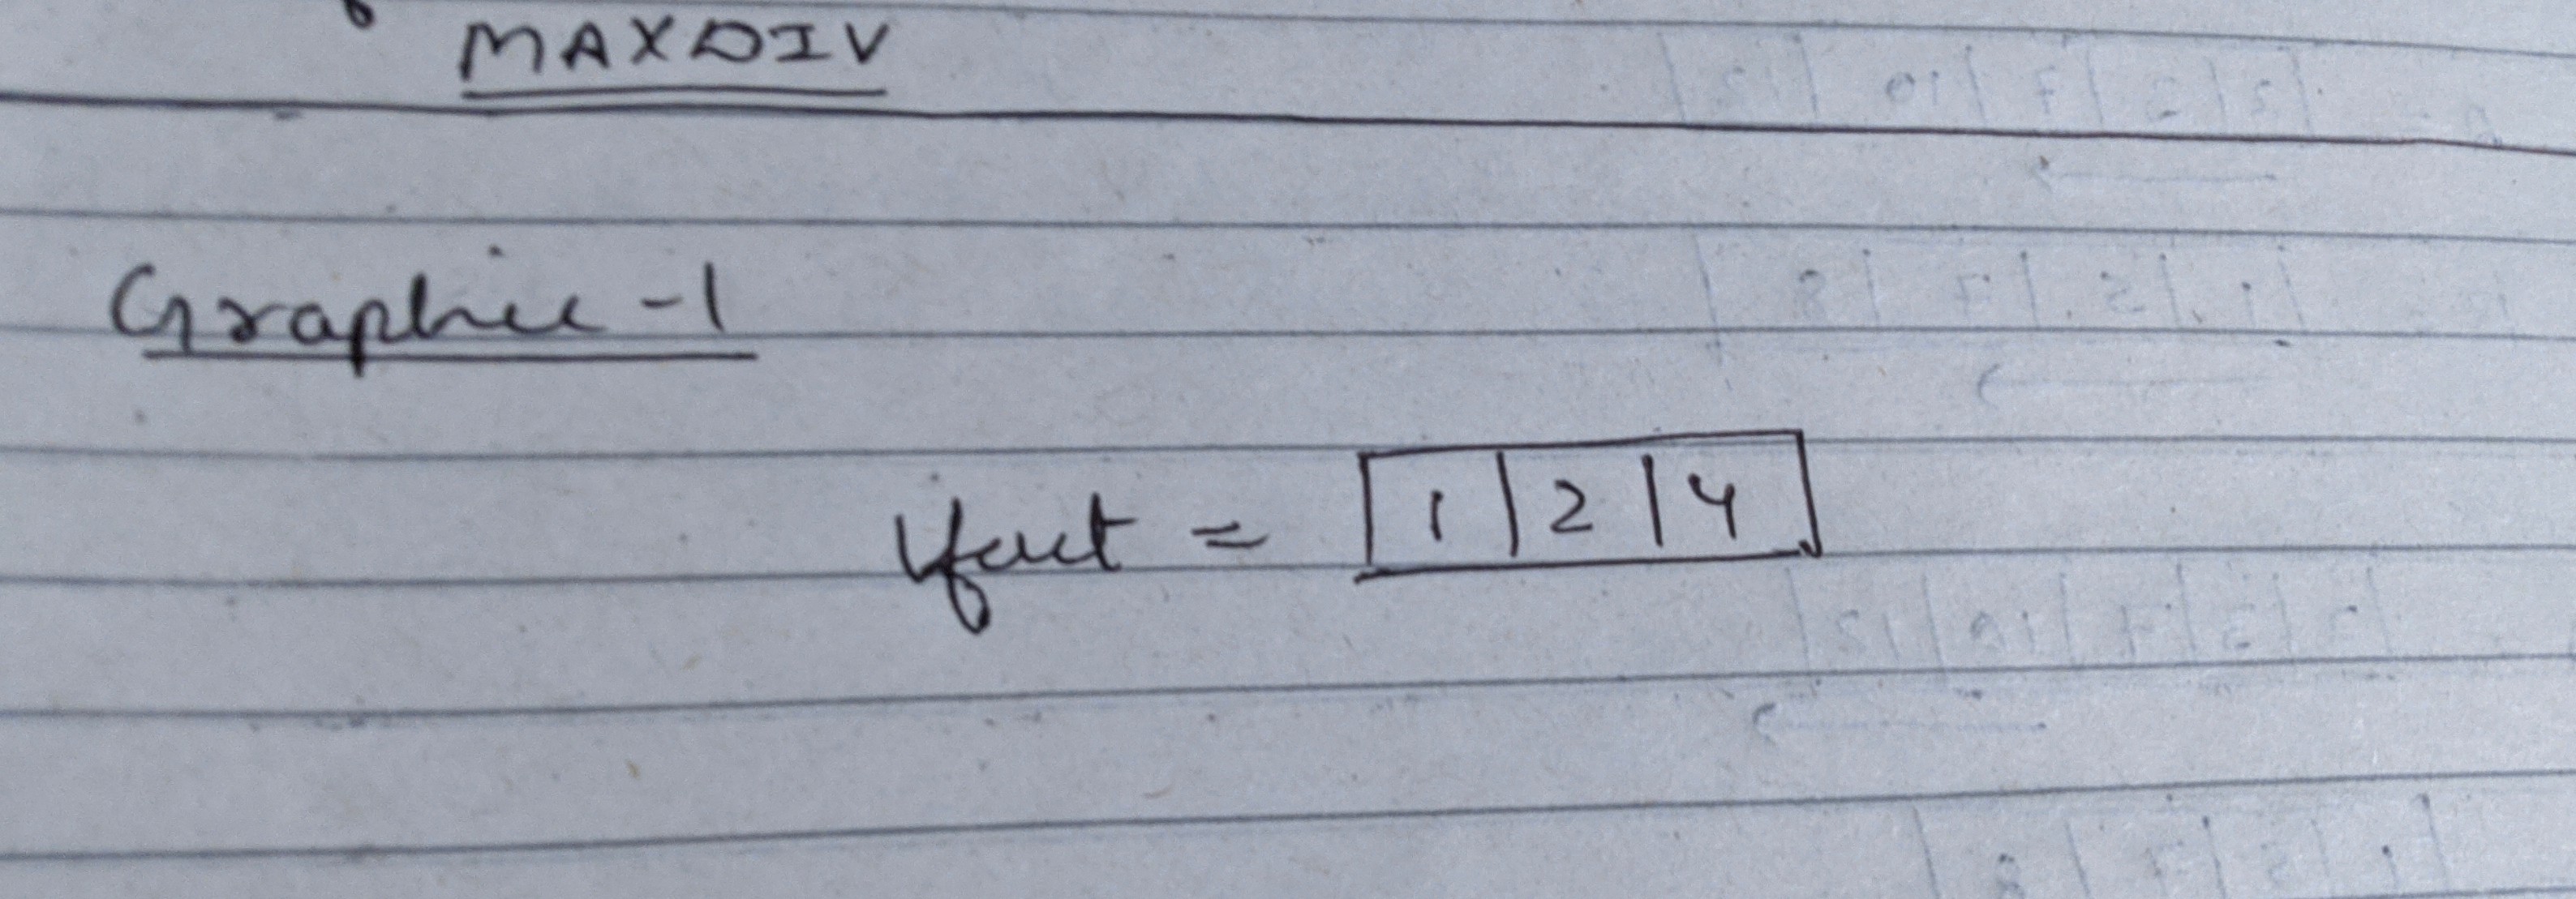 MAXDIV
Graphic-1
vfact = 1 | 2 | 4